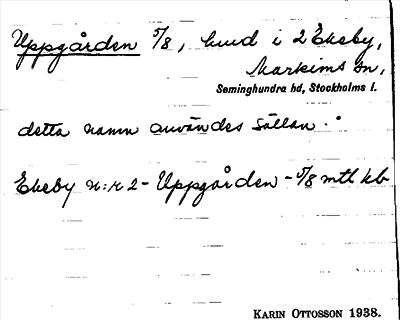 Uppgården 5/8, hmd i 2 Ekeby,
Markims sn,
Seminghundra hd, Stockholms l.
detta namn användes sällan.
Ekeby n:r 2 - Uppgården - 5/8 mtl kb
KARIN OTTOSSON 1938.